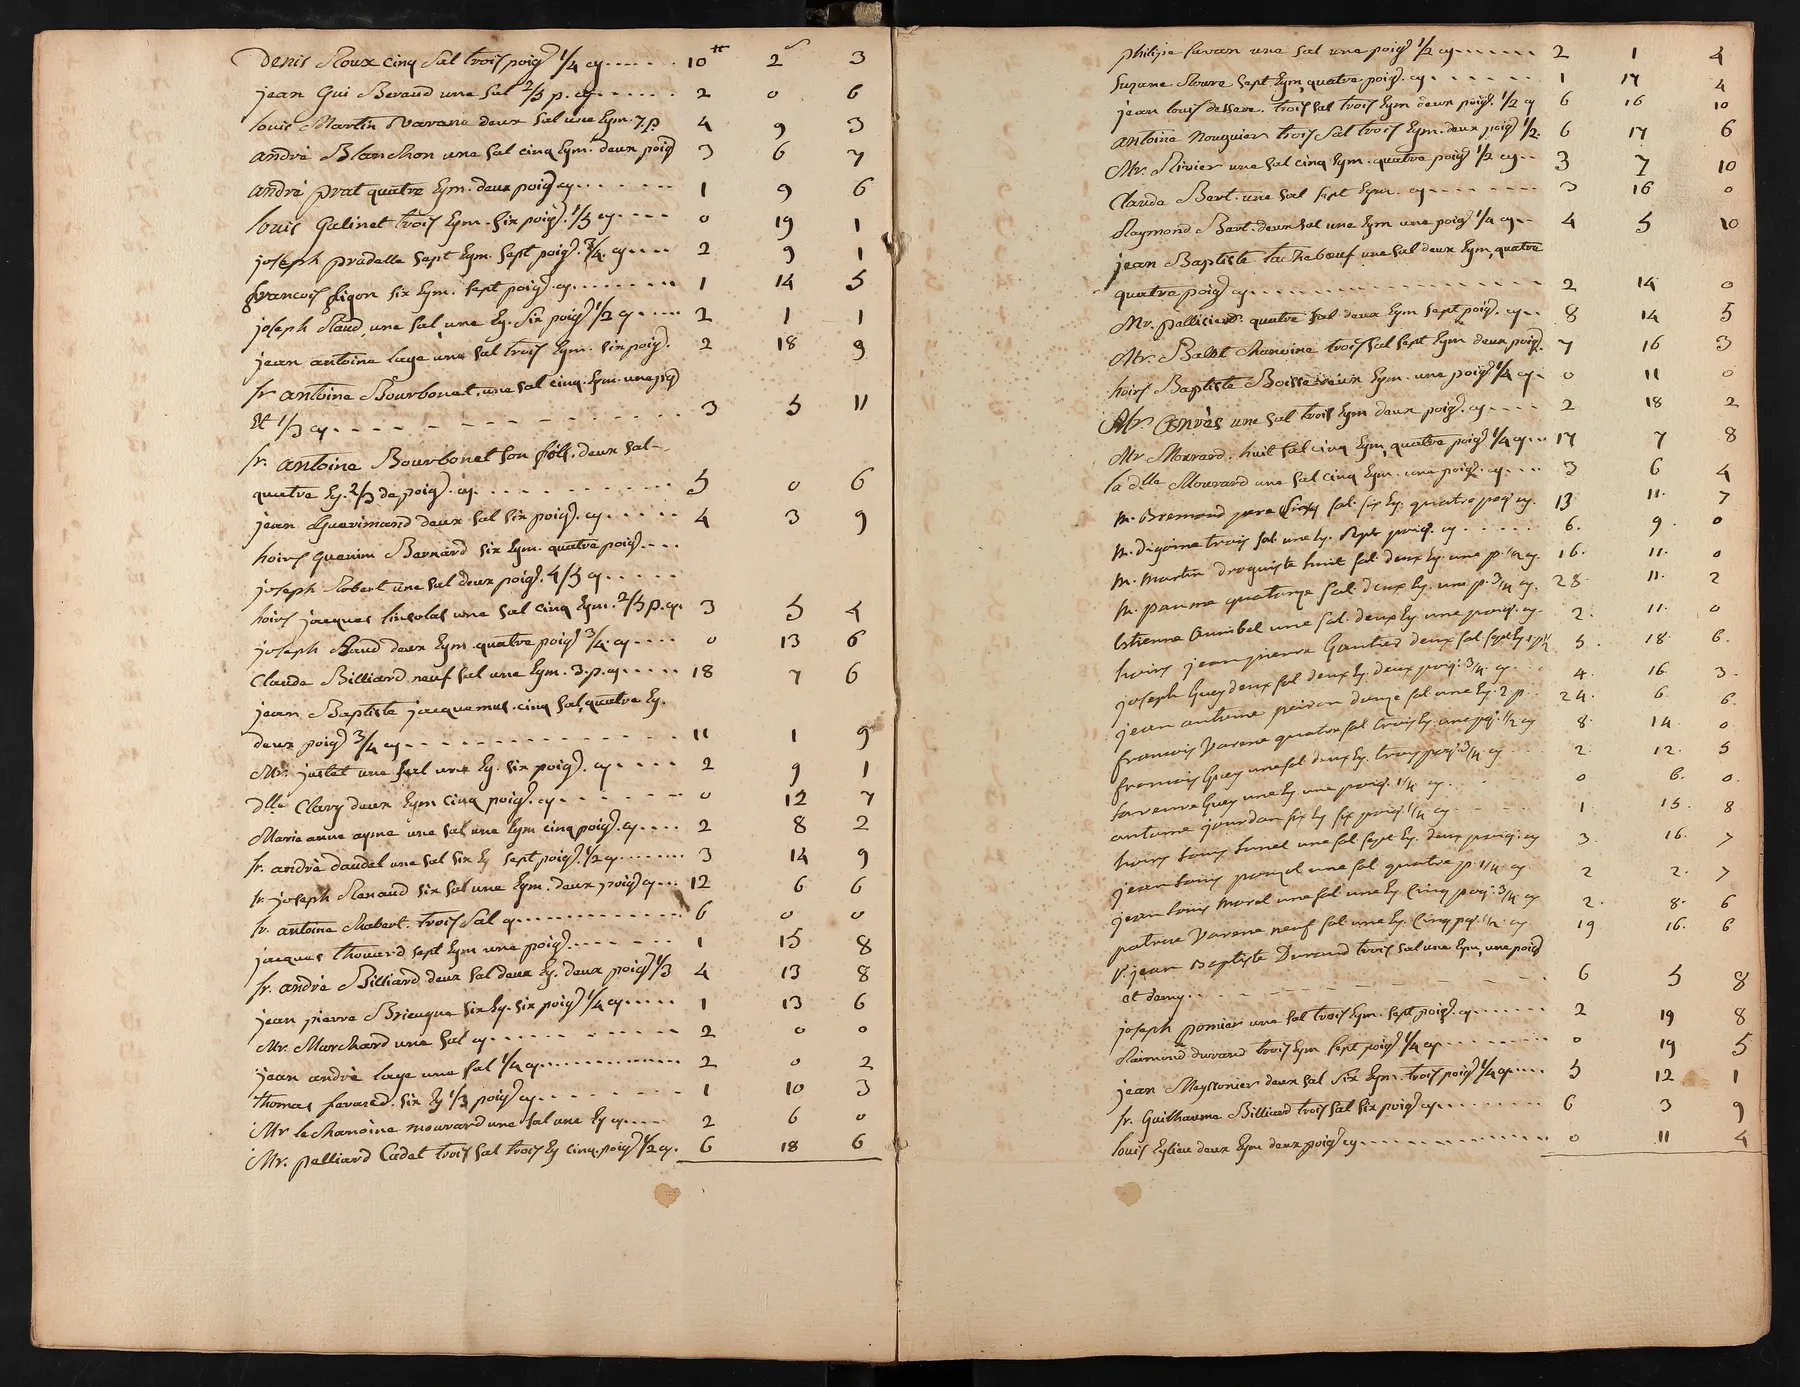 Denis Roux cinq Sal trois poig. 1/4 cy...... 10# 2s 3
jean Gui Beraud une Sal 2/3 p. cy...... 2 0 6
louis Martin Navane deux Sal une Eym. 7.p. 4 9 3
andrè Blanchon une Sal cinq Eym. deux poig 3 6 7
andrè prat quatre Eym. deux poig cy...... 1 9 6
louis Galinet trois Eym. six poig. 1/3 cy.... 0 19 1
joseph pradelle sept Eym. sept poig. 3/4. cy.... 2 9 1
francois figon six Eym. sept poig. cy........ 1 14 5
joseph Raud, une Sal, une Ey. six poig 1/2 cy..... 2 1 1
jean antoine laye une Sal trois Eym. six poig. 2 18 9
sr antoine Bourbonet, une Sal cinq. Eym. une pog
et 1/3 cy............ 3 5 11
sr. antoine Bourbonet son fils. deux Sal-
quatre Ey. 2/3 de poig. cy............ 5 0 6
jean Guerimand deux Sal six poig. cy..... 4 3 9
hoirs Guerim Bernard six Eym. quatre poig....
joseph Robert une Sal deux poig. 4/5 cy.....
hoirs jacques linsolas une Sal cinq Eym. 2/3 p. cy. 3 5 4
joseph Raud deux Eym. quatre poig 3/4. cy.... 0 13 6
Claude Billiard neuf Sal une Eym. 3.p.cy..... 18 7 6
jean Baptiste jacquemus. cinq Sal, quatre Ey.
deux poig 3/4 cy............ 11 1 9
Mr. justet une Sal une Ey. six poig. cy..... 2 9 1
dlle Clary deux Eym cinq poig. cy...... 0 12 7
Marie anne ayme une Sal une Eym cinq poig. cy.... 2 8 2
sr. andrè daudel une Sal six Ey sept poig. 1/2 cy....... 3 14 9
sr joseph Renaud six Sal une Eym. deux poig cy... 12 6 6
sr. antoine Chabert. trois Sal cy............ 6 0 0
jacques thouard sept Eym une poig........ 1 15 8
sr. andrè Billiard deux Sal deux Ey. deux poig 1/3 4 13 8
jean pierre Brieugne six Ey. six poig 1/4 cy..... 1 13 6
Mr. Marchard une Sal cy........ 2 0 0
jean andrè laye une Sal 1/4 cy............ 2 0 2
thomas favard. six Ey 1/3 poig cy........ 1 10 3
Mr le Chanoine mourard une Sal une Ey cy..... 2 6 0
Mr. palliard Cadet trois Sal trois Ey cinq. poig 1/2 cy. 6 18 6
philipe favan une Sal une poig 1/2 cy....... 2 1 4
Suzane Roure sept Eym, quatre poig. cy....... 1 17 4
jean louis dessere. trois Sal trois Eym deux poig. 1/2 cy 6 16 10
antoine Nouguier trois Sal trois Eym. deux poig 1/2. 6 17 6
Mr. Rivier une Sal cinq Eym. quatre poig 1/2 cy.. 3 7 10
Claude Bert. une Sal sept Eym. cy........ 3 16 0
Raymond Bert. deux Sal une Eym une poig 1/4 cy.. 4 5 10
jean Baptiste tachebœuf une Sal deux Eym, quatre
quatre poig cy............ 2 14 0
Mr. pallicier. quatre Sal deux Eym sept poig. cy.. 8 14 5
Mr. Balet Chanoine trois Sal sept Eym deux poig. 7 16 3
hoirs Baptiste Boisse deux Eym. une poig 1/4 cy. 0 11 0
Mr. une Sal trois Eym deux poig. cy.... 2 18 2
Mr Mourard. huit Sal cinq Eym, quatre poig 1/4 cy... 17 7 8
la dlle Mourard une Sal cinq Eym. une poig. cy.... 3 6 4
m. Bremond pere sal. six Ey. quatre poig cy. 13 11. 7
m. digoine trois sal. une Ey. sept poig. cy..... 6. 9. 0
m. martin droguiste huit sal. deux Ey. une p. 1/2 cy. 16. 11. 0
m. paume quatorze sal. deux Ey. une p. 3/4 cy. 28 11. 2
Etienne Annibel une sal. deux Ey. une poig. cy. 2. 11. 0
hoirs jean pierre Gautier deux sal. sept Ey 1 p 1/2 5. 18. 6.
joseph Guey deux sal deux Ey. deux poig. 3/4. cy... 4. 16 3.
jean antoine peiron douze sal une Ey. 2 p. 24. 6. 6.
francois Varene quatre sal trois Ey. une pog. 1/2 cy 8. 14. 0.
francois Guey une sal deux Ey. trois poig. 3/4. cy... 2. 12. 5
laurence Guey une Ey. une poig. 1/4 cy.... 0 6. 0.
antoine jourdan six Ey six poig. 1/4 cy.... 1. 15. 8
hoirs louis lunel une sal sept Ey. deux poig. cy 3. 16. 7
jean louis pouzol une sal. quatre p. 1/4 cy. 2 2. 7
jean louis morel une sal. une Ey. cinq poig. 3/4 cy 2. 8. 6
patrice Varene neuf sal. une Ey. cinq pog. 1/2. cy 19 16. 6
sr. jean Baptiste Durand trois Sal une Eym, une poig
et demy............ 6 5 8
joseph pomier une Sal trois Eym. sept poig. cy....... 2 19 8
Raimond durand trois Eym sept poig 1/4 cy....... 0 19 5
jean Meyssonier deux Sal six Eym. trois poig 1/4 cy.... 5 12 1
sr. Guilhaume Billiard trois Sal six poig cy........ 6 3 9
louis Eglieu deux Eym deux poig cy............ 0 11 4